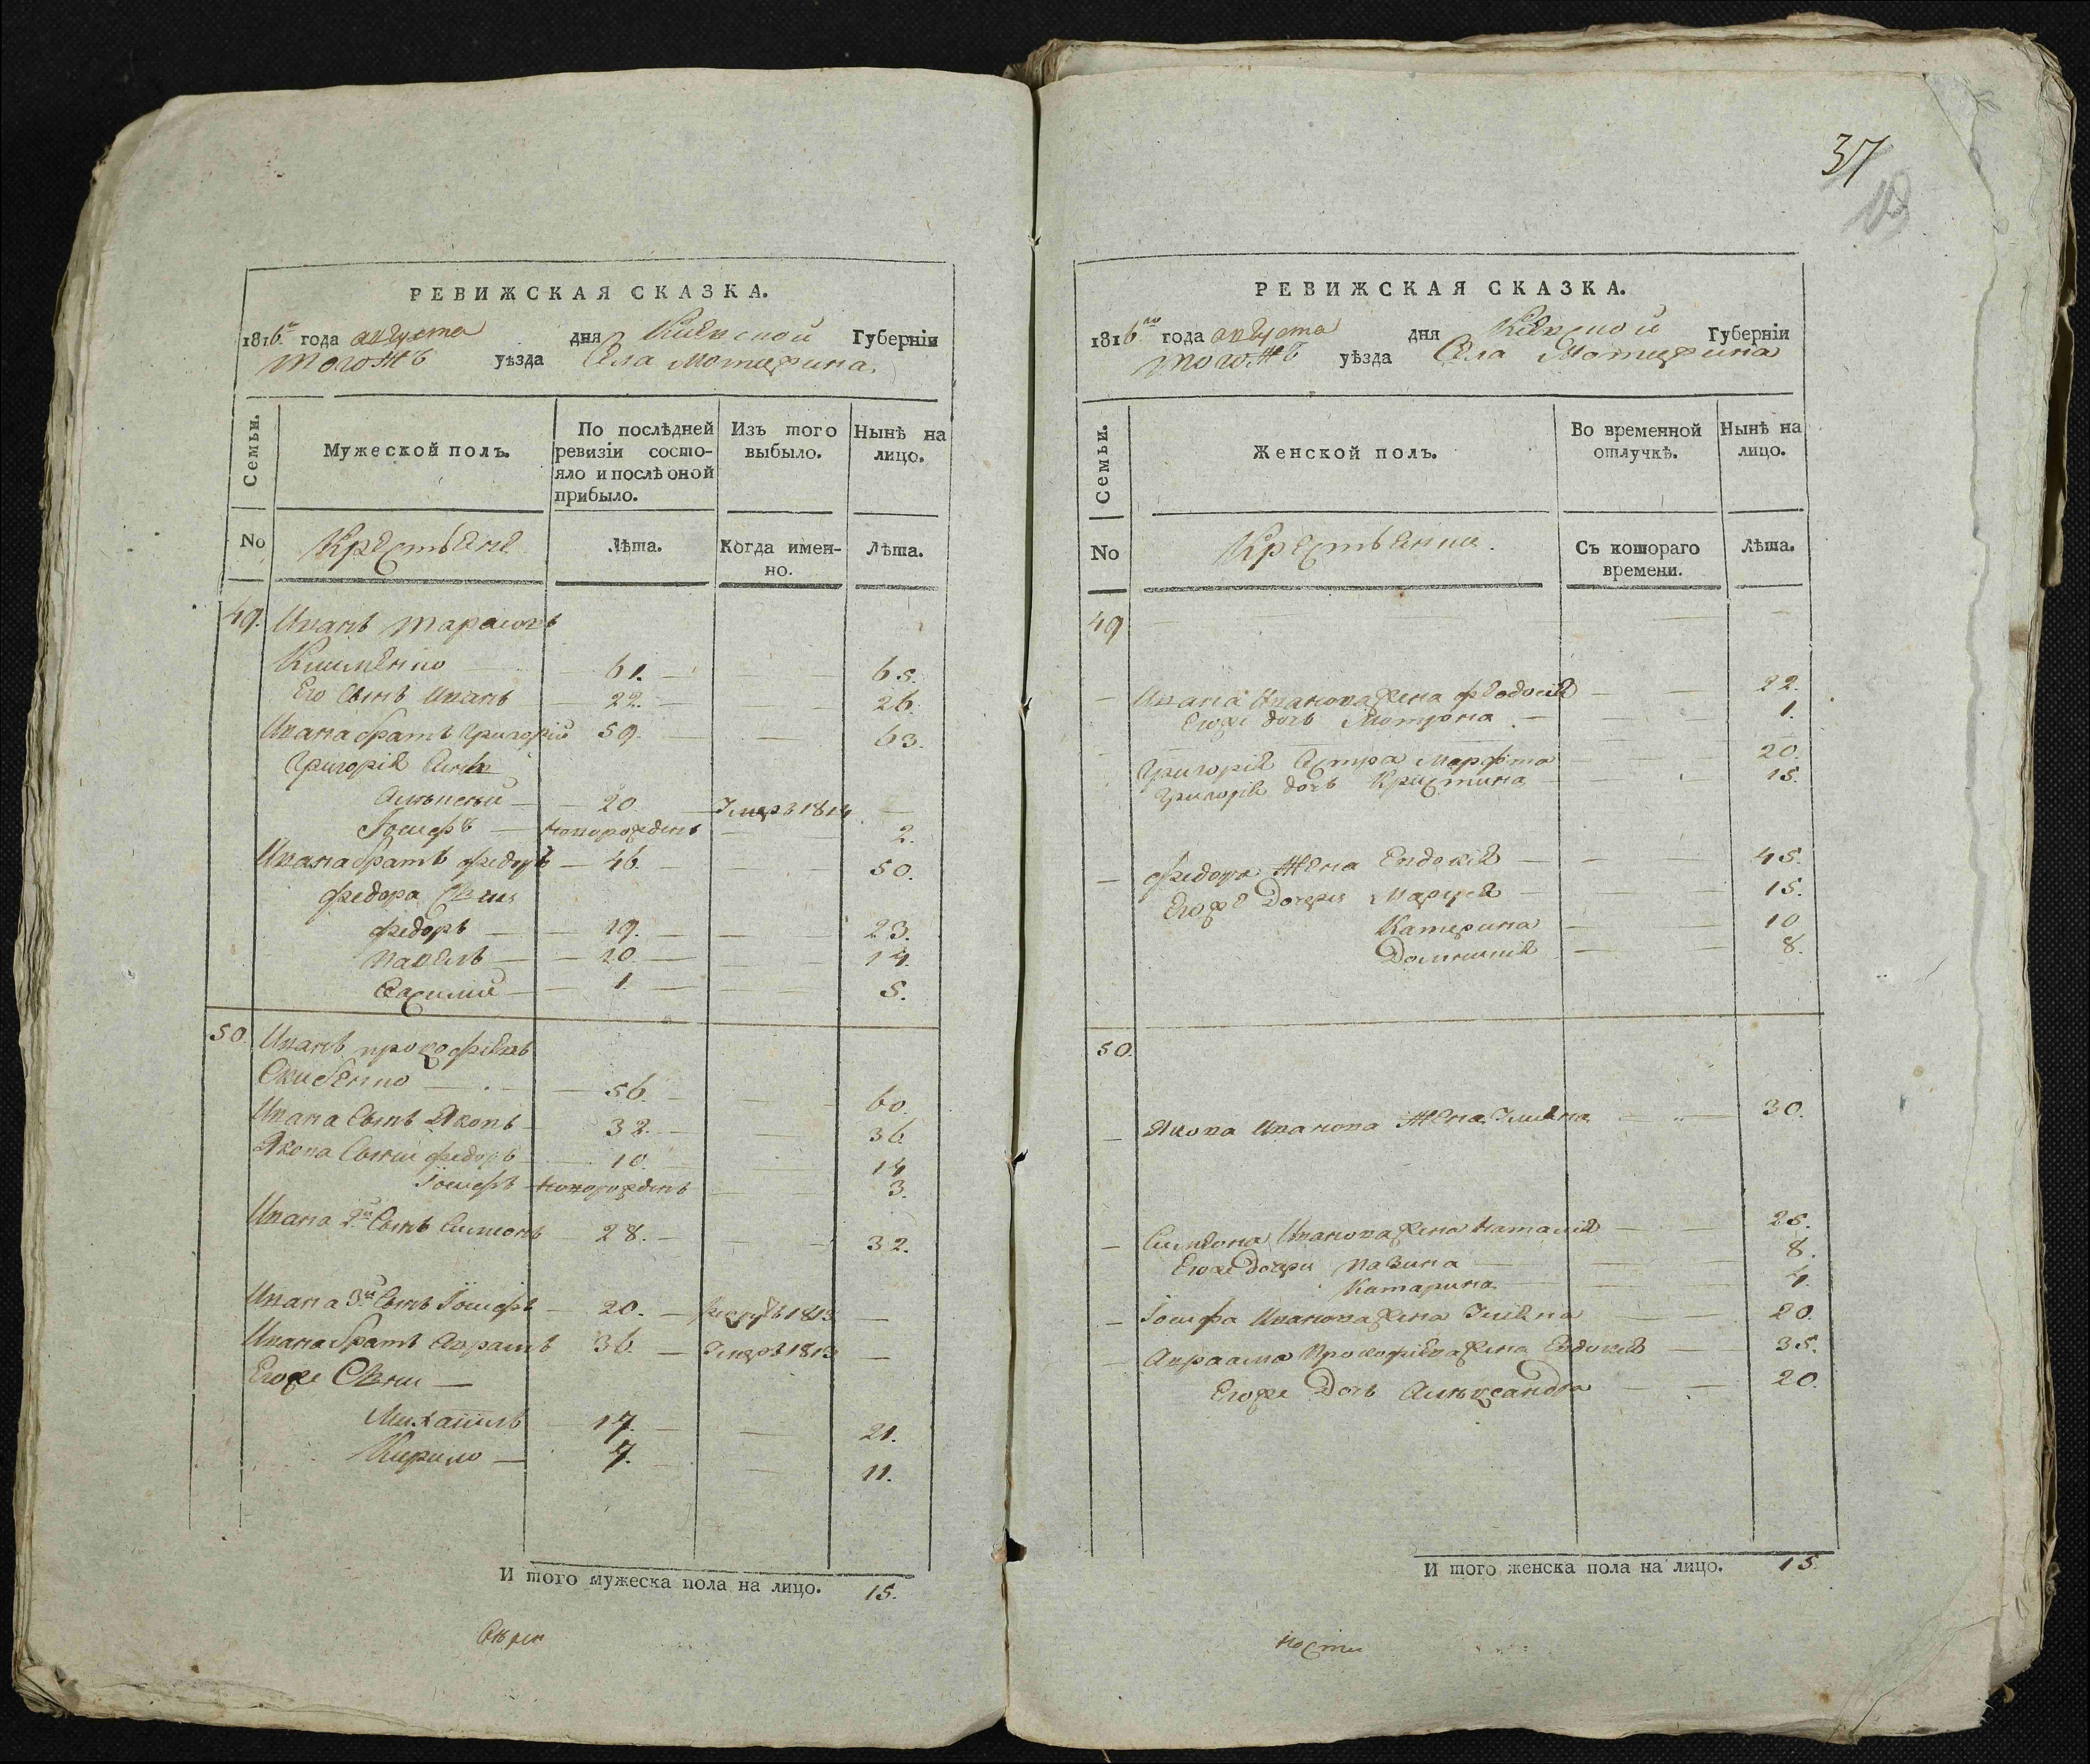 37
РЕВИЖСКАЯ СКАЗКА.
1816го года августа дня Киевской Губернїи
тогожъ уѣзда Села Мотыжина.
Семьи.
Мужеской полъ.
По послѣдней ревизїи состояло и послѣ оной прибыло.
Изъ того выбыло.
Нынѣ на лицо.
No
Крестьяне
Лѣта.
Когда именно.
Лѣта.
49. Иванъ Тарасовъ
Клименко 61. 65.
Его сынъ Иванъ 22. 26.
Ивана братъ Григорій 59. 63.
Григорія сыны
Алексѣй 20 Умеръ 1814
Іосифъ новорожденъ 2.
Ивана братъ Федоръ 46. 50.
Федора сыны
Федоръ 19. 23.
Павелъ 10. 14.
Василий 1. 5.
50. Иванъ Прокофіевъ
Скибенко 56. 60.
Ивана сынъ Яковъ 32. 36.
Якова сыны Федоръ 10. 14
Іосифъ новорожденъ 3.
Ивана 2й сынъ Симеонъ 28. 32.
Ивана 3й сынъ Іосифъ 20. 1813
Ивана братъ Авраамъ 36. Умеръ 1813
Егоже сыны
Михаіилъ 17. 21.
Кирило 7. 11.
И того мужеска пола на лицо. 15.
РЕВИЖСКАЯ СКАЗКА.
1816го года августа дня Киевской Губернїи
тогожъ уѣзда Села Мотыжина
Семьи.
Женской полъ.
Во временной отлучкѣ.
Нынѣ на лицо.
No
Крестьянки.
Съ котораго времени.
Лѣта.
49
Ивана Иванова жена Феодосія 22.
Егоже дочь Мотрона 1.
Григорія сестра Марфа 20.
Григорія дочь Кристина 15.
Федора жена Евдокія 45.
Егоже дочери Марія 15.
Катерина 10
Домникія 8.
50.
Якова Иванова жена Уліяна 30.
Симеона Иванова жена Наталія 25.
Егоже дочери 8.
Катарина 4.
Іосифа Иванова жена Уліяна 20.
Авраама Прокофіева жена Евдокія 35.
Егоже дочь Александра 20.
И того женска пола на лицо. 15.